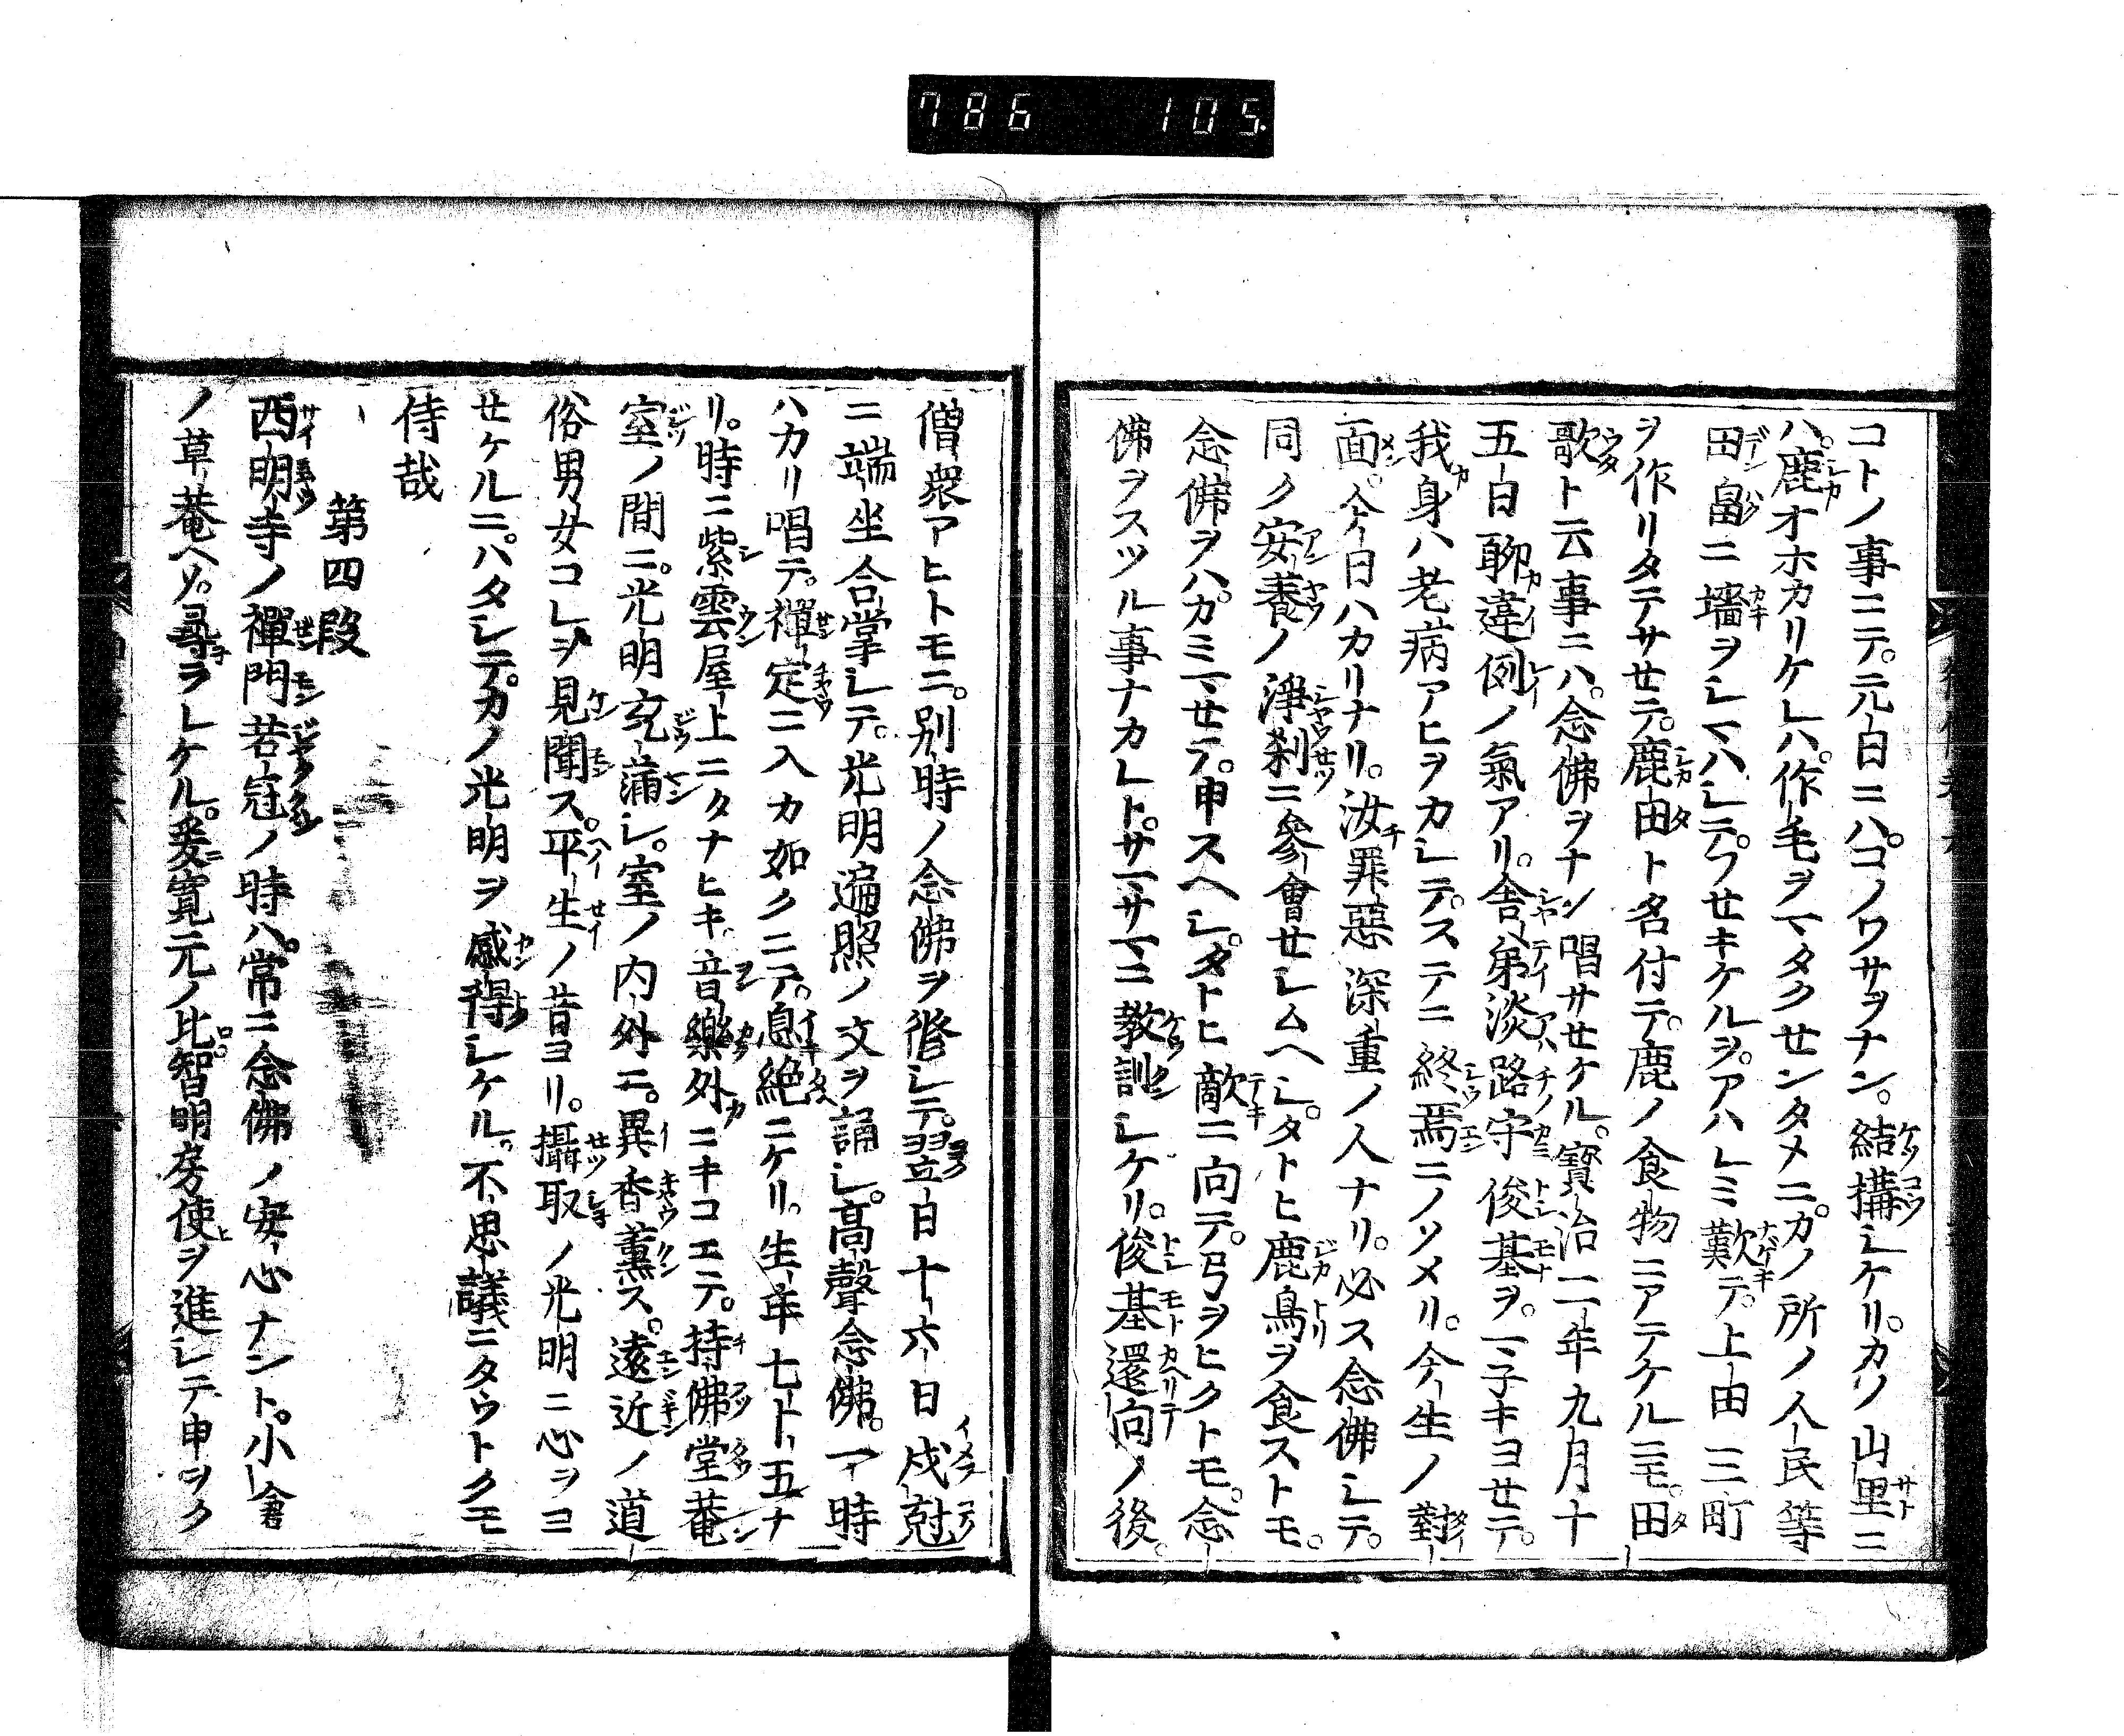 786 105.
コトノ事ニテ。元日ニハ。コノワサヲナン。結構シケリ。カノ山里ニ
ハ。鹿オホカリケレハ。作毛ヲマタクセンタメニ。カノ所ノ人民等
田畠ニ墻ヲシマハシテ。フセキケルヲ。アハレミ歎テ。上田三町
ヲ作リタテサセテ。鹿田ト名付テ。鹿ノ食物ニアテケルニモ。田
歌ト云事ニハ。念佛ヲナン唱サセケル。寳治二年九月十
五日聊違例ノ氣アリ。舎弟淡路守俊基ヲ。一子キヨセテ。
我身ハ老病アヒヲカシテ。ステニ終焉ニノソメリ。今生ノ對
面。今日ハカリナリ。汝罪惡深重ノ人ナリ。必ス念佛シテ。
同ク安養ノ淨刹ニ參會セシムヘシ。タトヒ鹿鳥ヲ食ストモ。
念佛ヲハ。カミマセテ。申スヘシ。タトヒ敵ニ向テ。弓ヲヒクトモ。念
佛ヲスツル事ナカレト。サマサマニ教訓シケリ。俊基還向ノ後。
僧衆アヒトモニ。別時ノ念佛ヲ修シテ。翌日十六日戌尅
ニ端坐合掌シテ。光明遍照ノ文ヲ誦シ。高聲念佛。一時
ハカリ唱テ。禪定ニ入カ如クニテ。息絶ニケリ。生年七十五ナ
リ。時ニ紫雲屋上ニタナヒキ。音樂外ニキコエテ。持佛堂菴
室ノ間ニ。光明充滿シ。室ノ内外ニ。異香薫ス。遠近ノ道
俗男女コレヲ見聞ス。平生ノ昔ヨリ。攝取ノ光明ニ心ヲヨ
セケルニ。ハタシテ。カノ光明ヲ感得シケル。不思議ニタウトクモ
侍哉
第四段
西明寺ノ禪門若冠ノ時ハ。常ニ念佛ノ安心ナント。小倉
ノ草菴ヘソ。尋ラレケル。爰寛元ノ比智明房使ヲ進シテ申ヲク